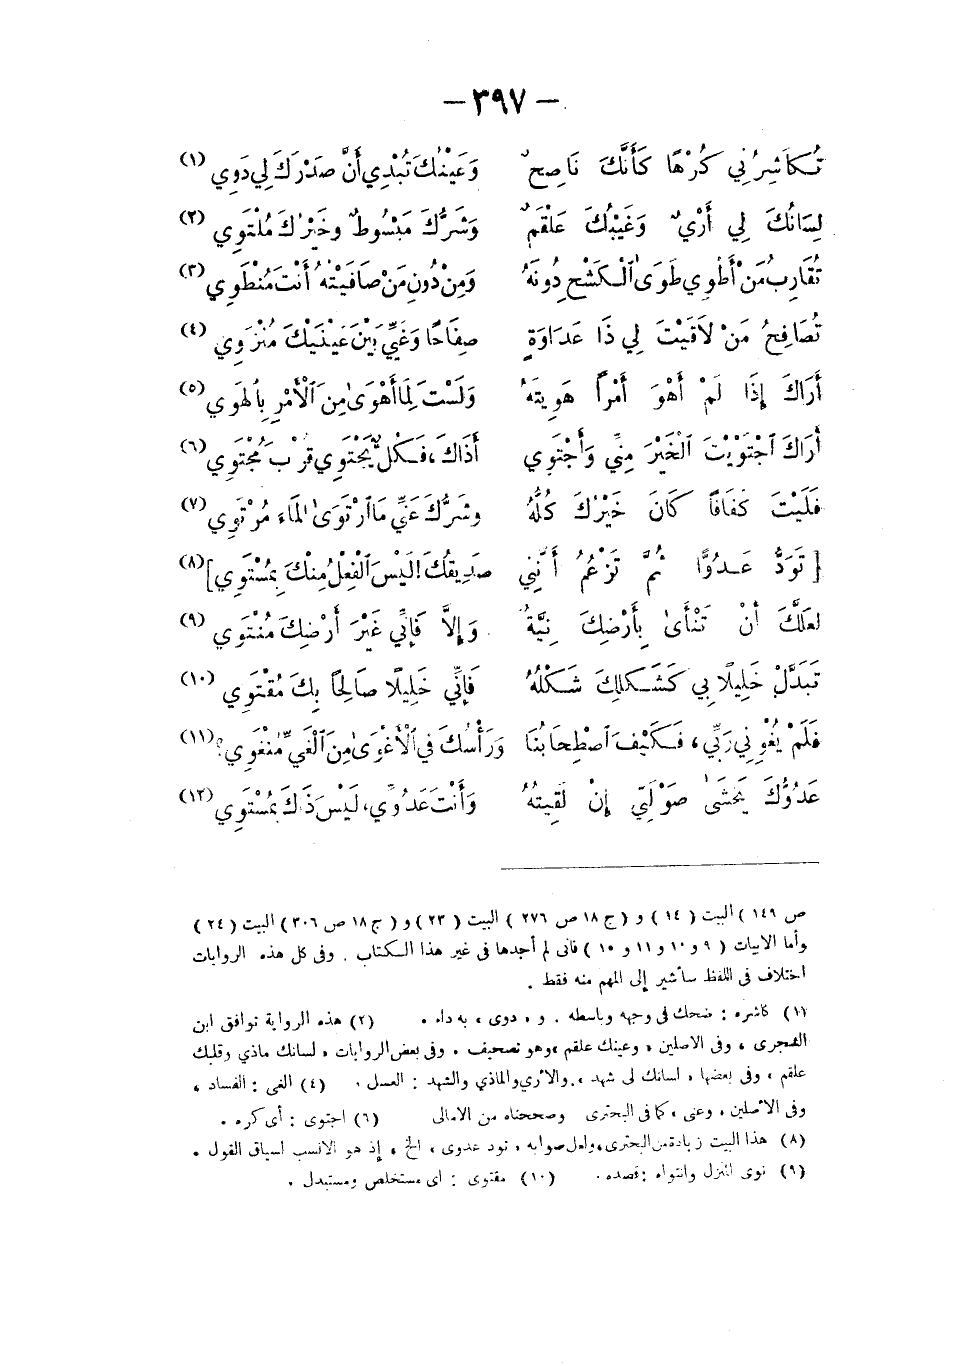 — ٣٩٧ —
تُكَاشِرُنِي كُرْهًا كَأَنَّكَ نَاصِحٌ وَعَيْنُكَ تُبْدِي أَنَّ صَدْرَكَ لِي دَوِي (١)
لِسَانُكَ لِي أَرْيٌ وَغَيْبُكَ عَلْقَمٌ وَشَرُّكَ مَبْسُوطٌ وخَيْرُكَ مُلْتَوِي (٢)
تُقَارِبُ مَنْ أَطْوِي طَوَى الْكَشْحِ دُونَهُ وَمِنْ دُونِ مَنْ صَافَيْتُهُ أَنْتَ مُنْطَوِي (٣)
تُصَافِحُ مَنْ لاَقَيْتَ لِي ذَا عَدَاوَةٍ صِفَاحًا وَغَيِّي بَيْنَ عَيْنَيْكَ مُنْزَوِي (٤)
أَرَاكَ إِذَا لَمْ أَهْوَ أَمْراً هَوِيتَهُ وَلَسْتَ لِمَا أَهْوَى مِنَ الْأَمْرِ بِالْهَوِي (٥)
أَرَاكَ اجْتَوَيْتَ الْخَيْرَ مِنِّي وَأَجْتَوِي أَذَاكَ، فَكُلٌّ يَجْتَوِي قُرْبَ مُجْتَوِي (٦)
فَلَيْتَ كَفَافًا كَانَ خَيْرُكَ كُلُّهُ وشَرُّكَ عَنِّي مَا ارْتَوَى الْمَاءَ مُرْتَوِي (٧)
[ تَوَدُّ عَدُوًّا ثُمَّ تَزْعُمُ أَنَّنِي صَدِيقُكَ! لَيْسَ الْفِعْلُ مِنْكَ بِمُسْتَوِي ] (٨)
لعَلَّكَ أنْ تَنْأَى بِأَرْضِكَ نِيَّةٌ وَإِلاَّ فَإِنِّي غَيْرَ أَرْضِكَ مُنْتَوِي (٩)
تَبَدَّلْ خَلِيلًا بِي كَشَكْلِكَ شَكْلُهُ فَإِنِّي خَلِيلًا صَالِحًا بِكَ مُقْتَوِي (١٠)
فَلَمْ يُغْوِنِي رَبِّي، فَكَيْفَ اصْطِحَابُنَا وَرَأْسُكَ فِي الْأَغْوَى مِنَ الْغَيِّ مُنْغَوِي؟ (١١)
عَدُوُّكَ يَخْشَى صَوْلَتِي إِنْ لَقِيتُهُ وَأَنْتَ عَدُوِّي، لَيْسَ ذَكَ بِمُسْتَوِي (١٢)
ص ١٤٩ ) البيت ( ١٤ ) و ( ج ١٨ ص ٢٧٦ ) البيت ( ٢٣ ) و ( ج ١٨ ص ٣٠٦ ) البيت ( ٢٤ )
وأما الابيات ( ٩ و ١٠ و ١١ و ١٥ ) فانى لم أجدها فى غير هذا الكتاب . وفى كل هذه الروايات
اختلاف فى اللفظ سأشير إلى المهم منه فقط .
(١) كاشره : ضحك فى وجهه وباسطه . و « دوى » به داء . (٢) هذه الرواية توافق ابن
الشجرى ، وفى الاصلين « وعينك علقم » وهو تصحيف . وفى بعض الروايات « لسانك ماذي وقلبك
علقم » وفى بعضها « لسانك لى شهد » . والأري والماذي والشهد : العسل . (٤) الغى : الفساد ،
وفى الأصلين « وعنى » كما فى البحترى وصححناه من الامالى (٦) اجتوى : أى كره .
(٨) هذا البيت زيادة من البحترى، ولعل صوابه « تود عدوى » الخ ، إذ هو الانسب لسياق القول .
(٩) نوى المنزل وانتواه : قصده . (١٠) مقتوى : اى مستخلص ومستبدل .